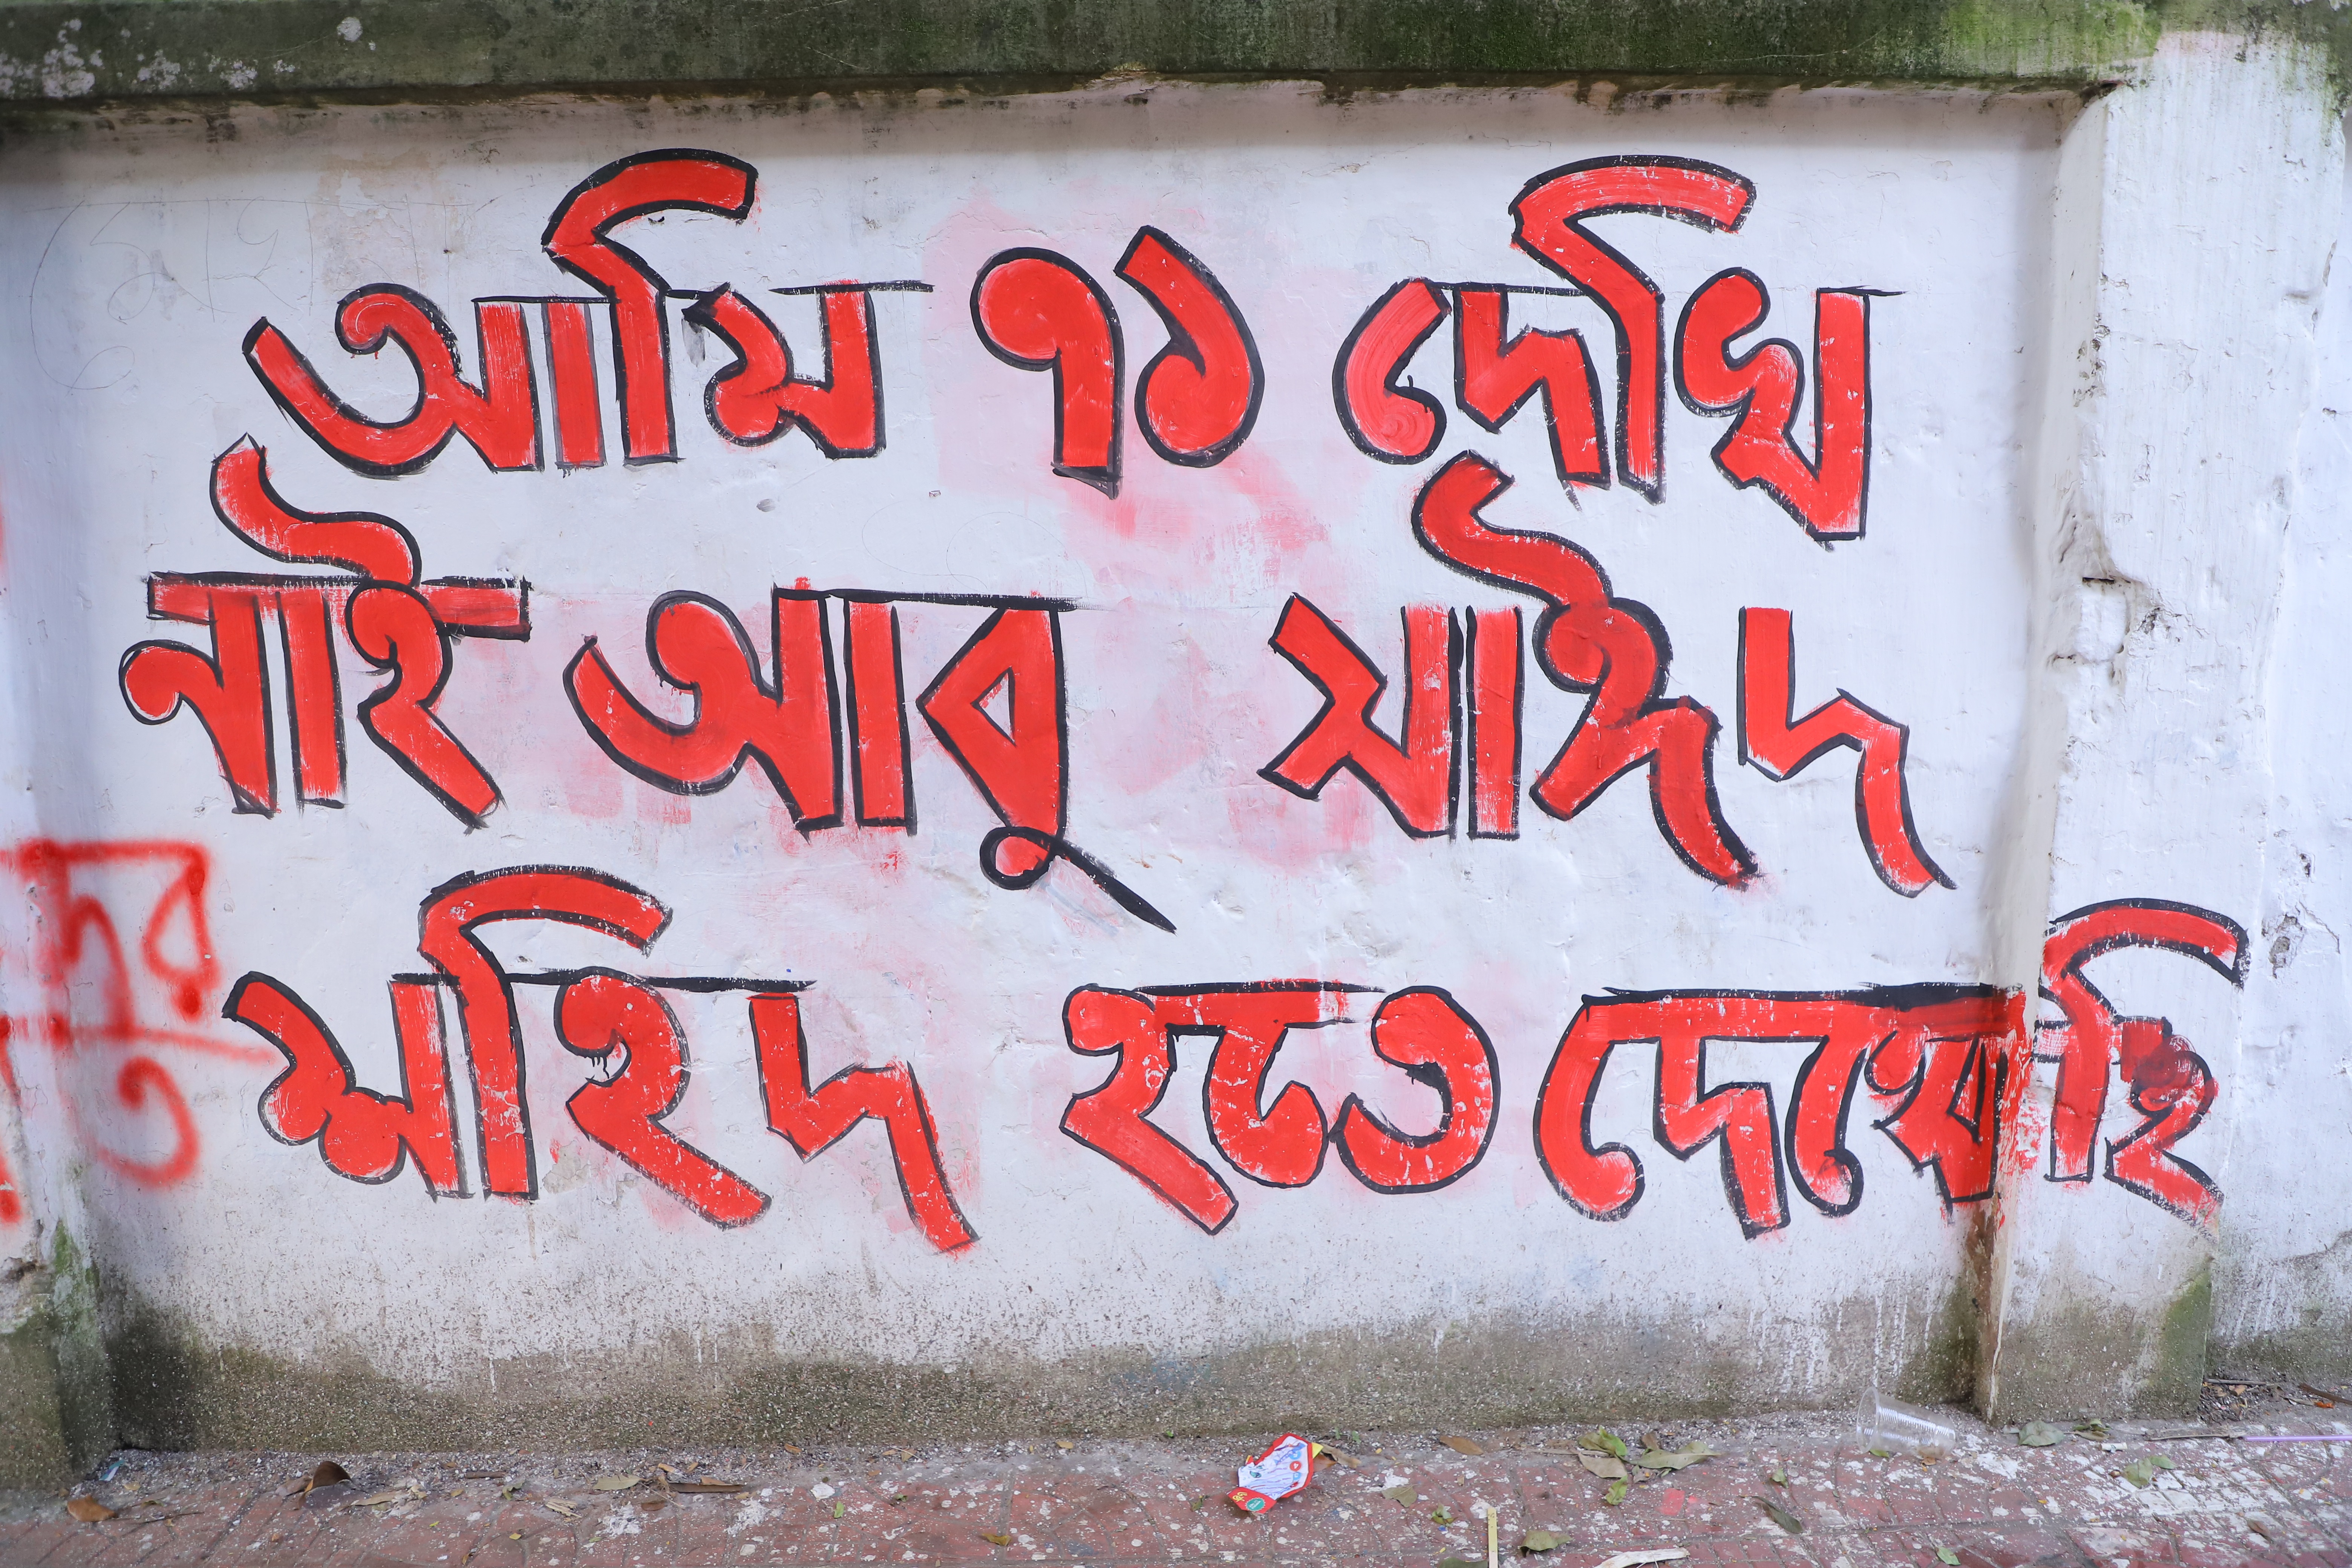 আমি ৭১ দেখি
নাই আবু সাঈদ
শহিদ হতে দেখেছি